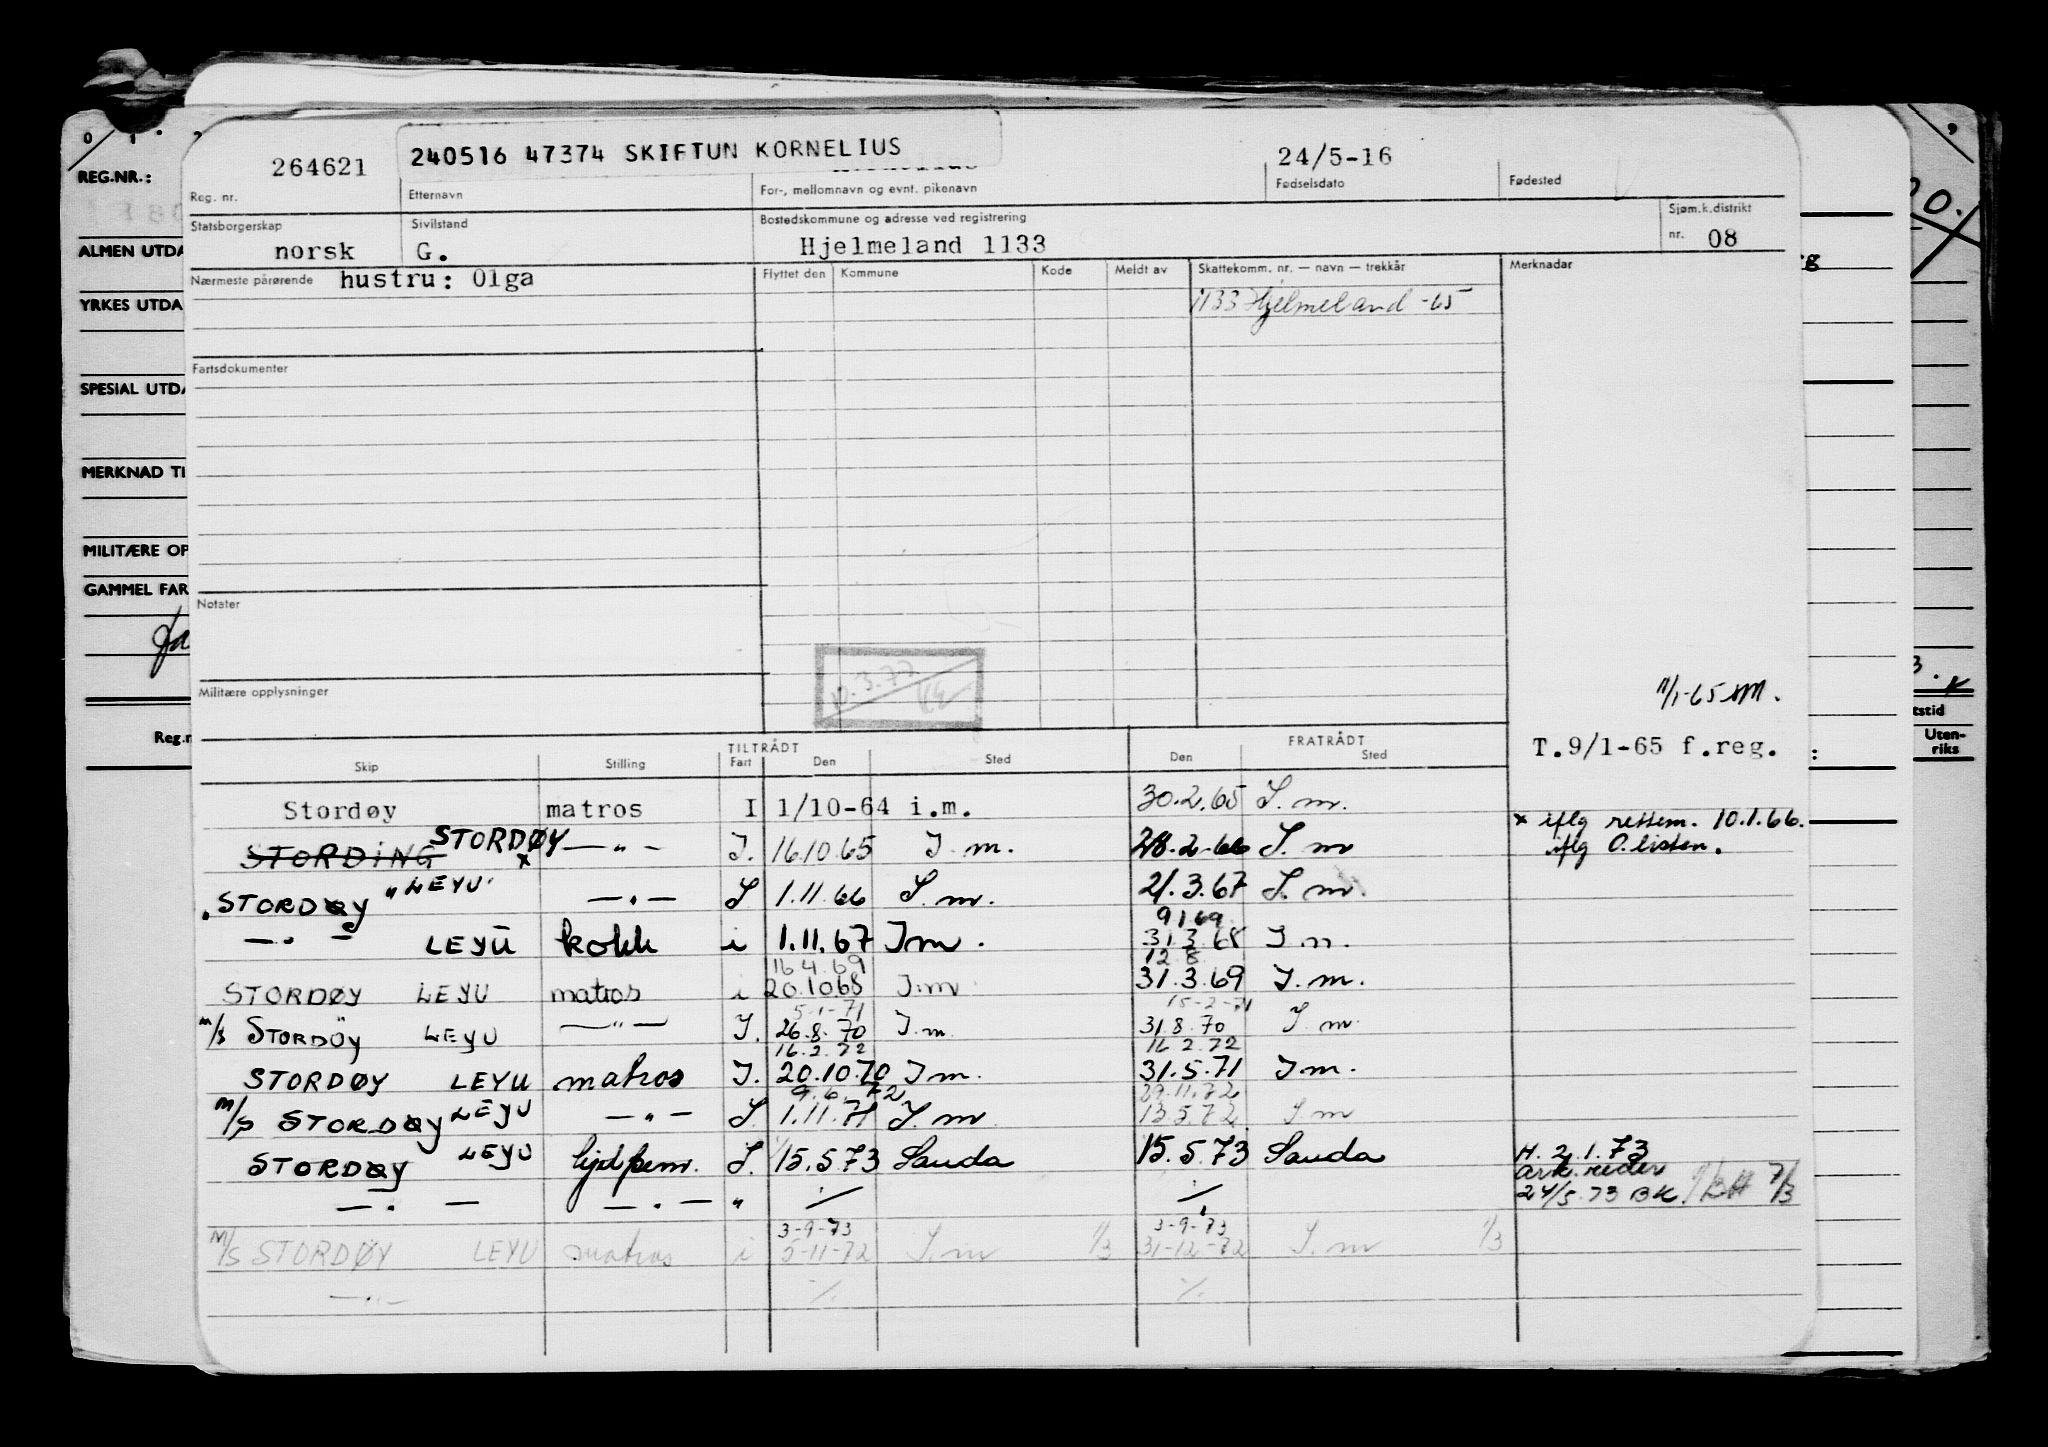 264621
240516 47374 SKIFTUN KORNELIUS
24/5-16
Reg. nr.
Etternavn
For-, mellomnavn og evnt. pikenavn
Fødselsdato
Fødested
Statsborgerskap
norsk
Sivilstand
G.
Bostedskommune og adresse ved registrering
Hjelmeland 1133
Sjøm.k.distrikt
nr. 08
Nærmeste pårørende hustru: Olga
Flyttet den
Kommune
Kode
Meldt av
Skattekomm. nr. — navn — trekkår
Merknadar
1133 Hjelmeland -65
Fartsdokumenter
Notater
Militære opplysninger
10.3.77
11/1-65
T.9/1-65 f.reg.
TILTRÅDT
FRATRÅDT
Skip
Stilling
Fart
Den
Sted
Den
Sted
Stordøy matros I 1/10-64 i.m. 30.2.65 I.m.
STORDING STORDØY x —"— I. 16.10.65 I.m. 28.2.66 I.m
x iflg rettem. 10.1.66.
iflg O.listen.
STORDØY "LEYU" —"— I 1.11.66 I.m. 21.3.67 I.m.
9 1 69
—"— LEYU kokk i 1.11.67 Im. 31.3.68 I.m.
16.4.69 12.8.
STORDØY LEYU matros i 20.10.68 I.m 31.3.69 I.m.
5-1-71 15-2-71
M/S STORDÖY LEYU —"— I. 26.8.70 I.m. 31.8.70 I.m.
16.2.72 16.2.72
STORDØY LEYU matros I. 20.10.70 I m. 31.5.71 I m.
9.6.72 29.11.72
M/S STORDØY LEYU —"— I. 1.11.71 I.m 13.5.72 I.m
STORDØY LEYU hjelpem. I. 15.5.73 Sauda 15.5.73 Sauda
H. 2.1.73
ark. reder
24/5.73 BK
7/3
—"— —"— " ./. ./.
3-9-73 3-9-73
M/S STORDØY LEYU matros i 5-11-72 I.m 1/3 31-12-72 I.m 1/3
—"— ./. ./.
REG.NR.:
ALMEN UTDA
YRKES UTDA
SPESIAL UTDA
MERKNAD TI
MILITÆRE OP
GAMMEL FAR
Reg.n
tstid
Uten-
riks